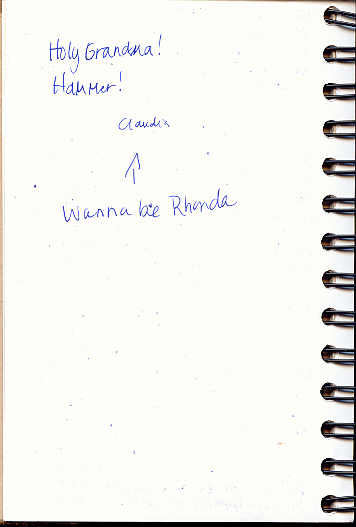 Holy Grandma!
Hammer!
Claudia
Wanna be Rhonda